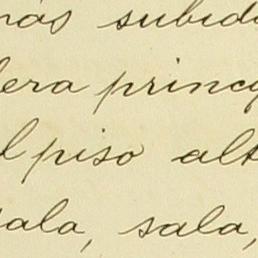 más subida
lera princi
l piso alt
sala, sala,